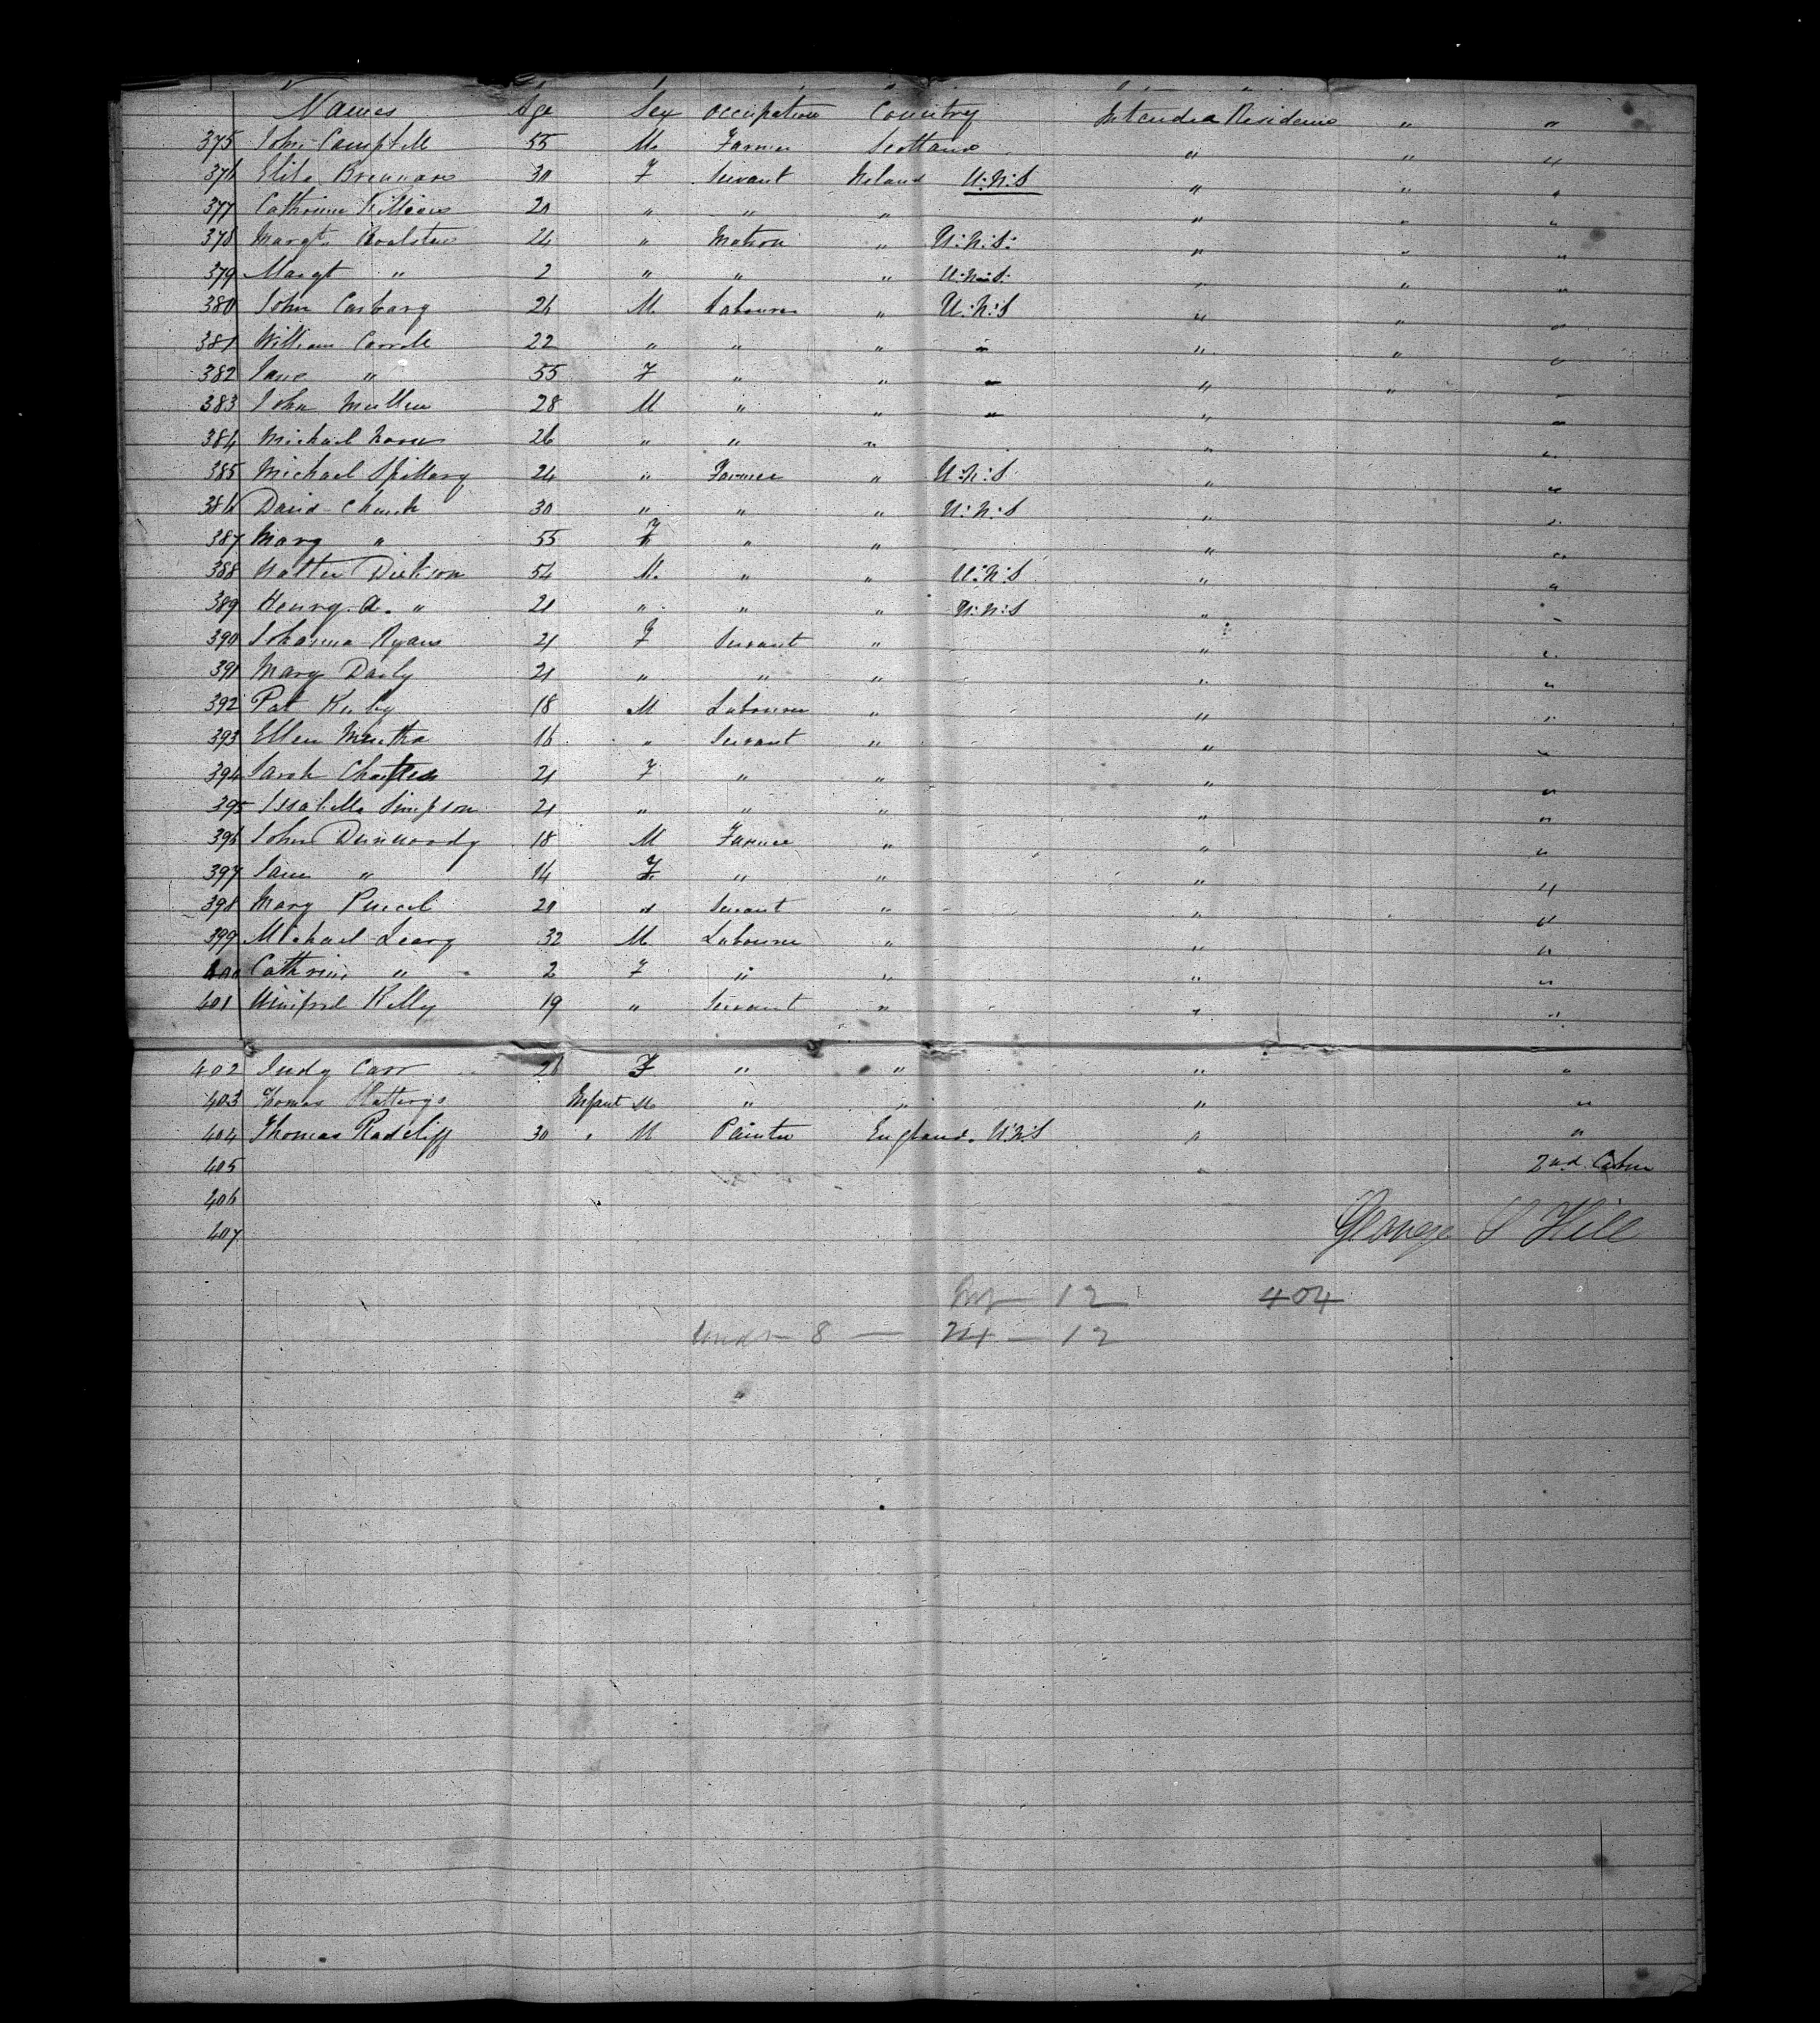 Names Age Sex Occupation Country Intended Residence " "
375 John Campbell 55 M. Farmer Scotland " " "
376 Eliza Brennan 30 F Servant Ireland U.N.S " " "
377 Cathrine Killian 20 " " " " " "
378 Margt. 24 " Matron " U.N.S. " " "
379 Margt " 2 " " " U.N.S. " " "
380 John 24 M Labourer " U.N.S " " "
381 William Carroll 22 " " " " " " "
382 Jane " 55 F " " " " " "
383 John Mullen 28 M " " " " "
384 Michael 26 " " " " "
385 Michael Spillary 24 " Farmer " U.N.S " "
386 David Church 30 " " " U.N.S " "
387 Mary " 55 F " " " "
388 Walter Dickson 54 M. " " U.N.S " "
389 Henry A. " 21 " " " U.N.S " "
390 Johanna Ryan 21 F Servant " " "
391 Mary Daily 21 " " " " "
392 Pat Kirby 18 M Labourer " " "
393 Ellen Murtha 16 " Servant " " "
394 Sarah Charters 21 F " " " "
395 Issabella Simpson 21 " " " " "
396 John Dunwoody 18 M Farmer " " "
397 Jane " 14 F " " " "
398 Mary Purcel 20 " Servant " " "
399 Michael Leary 32 M Labourer " " "
400 Cathrine " 2 F " " " "
401 Winifred Kelly 19 " Servant " " "
402 Judy Carr 26 F " " " "
403 Thomas Infant M " " " "
404 Thomas Radcliff 30 " M Painter England. U.N.S " "
405 2nd Cabin
406
407 George S Hill
Inf — 12 404
Under 8 — 24 — 12